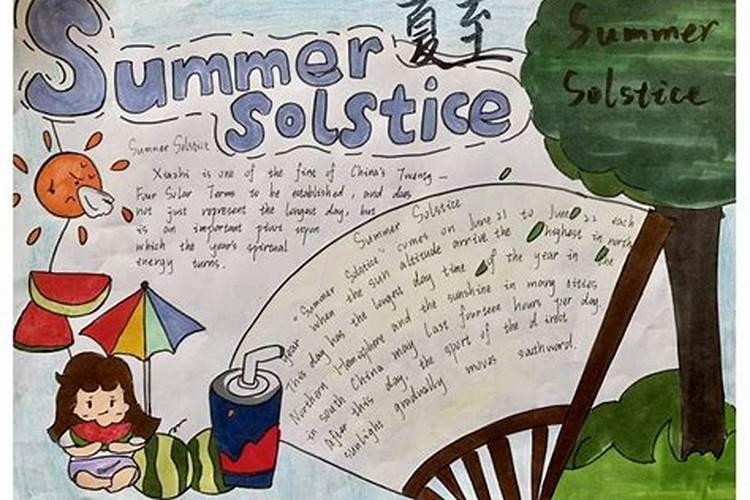 Summer
Solstice
夏至
Summer
Solstice
Summer Solstice
Xiazhi is one of the first of China's Twenty-
Four Solar Terms to be established, and does
not just represent the longest day, but
is an important pivot upon
which the year's spiritual
energy turns.
Summer Solstice
"Summer Solstice" comes on June 21 to June 22 each
year when the sun altitude arrive the highest in north.
This day has the longest day time of the year in the
Northern Hemisphere and the sunshine in many cities
in south China may last fourteen hours per day.
After this day, the spot of the direct
sunlight gradually moves southward.